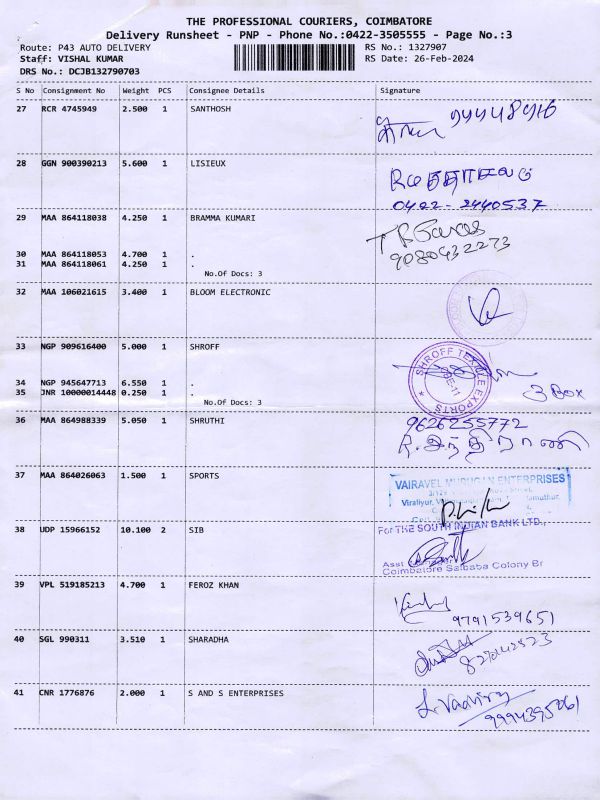 THE PROFESSIONAL COURIERS, COIMBATORE
Delivery Runsheet - PNP - Phone No.:0422-3505555 - Page No.:3
Route: P43 AUTO DELIVERY RS No.: 1327907
Staff: VISHAL KUMAR RS Date: 26-Feb-2024
DRS No.: DCJB132790703
S No Consignment No Weight PCS Consignee Details Signature
27 RCR 4745949 2.500 1 SANTHOSH
28 GGN 900390213 5.600 1 LISIEUX
0422-2440537
29 MAA 864118038 4.250 1 BRAMMA KUMARI
9080432273
30 MAA 864118053 4.700 1 .
31 MAA 864118061 4.250 1 .
No.Of Docs: 3
32 MAA 106021615 3.400 1 BLOOM ELECTRONIC
33 NGP 909616400 5.000 1 SHROFF
SHROFF TEXTILE EXPORTS
34 NGP 945647713 6.550 1 .
35 JNR 10000014448 0.250 1 .
3 Box
No.Of Docs: 3
36 MAA 864988339 5.050 1 SHRUTHI
9626255772
R. இந்திராணி
37 MAA 864026063 1.500 1 SPORTS
VAIRAVEL MURUGAN ENTERPRISES
38 UDP 15966152 10.100 2 SIB
For THE SOUTH INDIAN BANK LTD.,
Asst Manager
Coimbatore Saibaba Colony Br
39 VPL 519185213 4.700 1 FEROZ KHAN
9791539651
40 SGL 990311 3.510 1 SHARADHA
41 CNR 1776876 2.000 1 S AND S ENTERPRISES